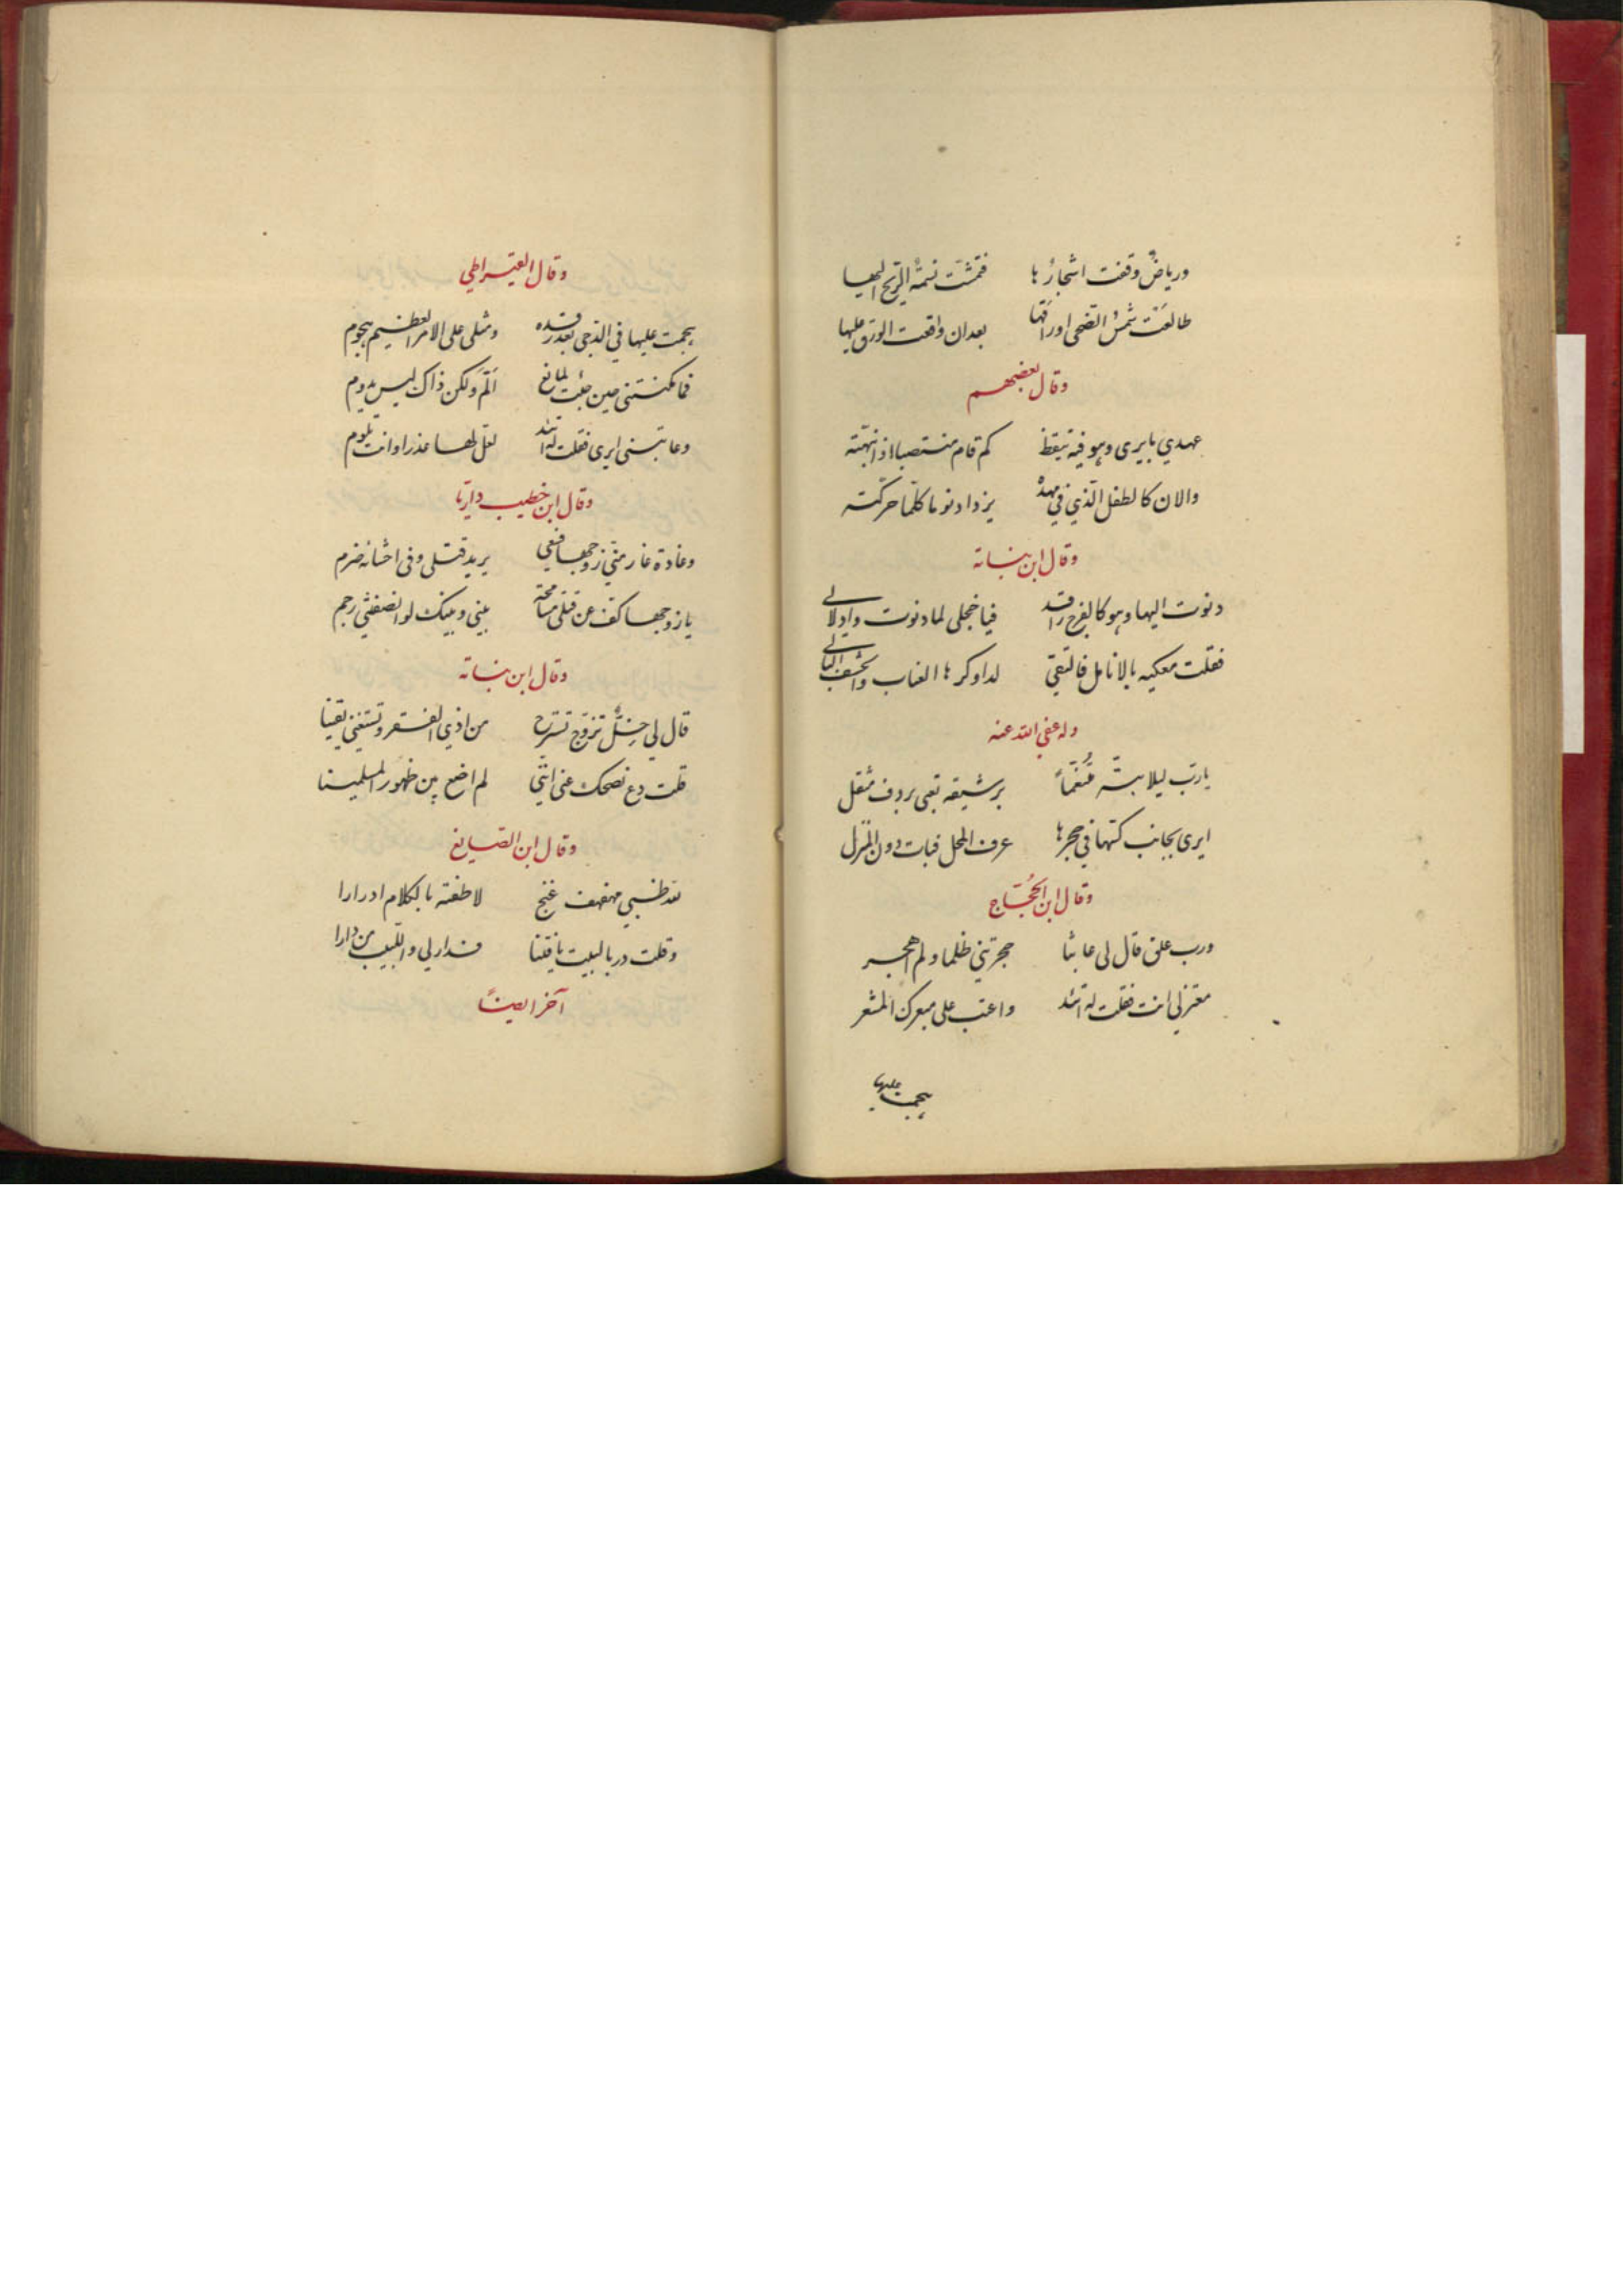 ورياضٌ وقفت اشجارُها فتمشّت نسمةُ الريح اليها
طالعَت شمسُ الضحى اوراقها بعد ان واقعت الورق عليها
وقال بعضهم
عهدي بايرى وهو فيه تيقظ كم قام منتصبا اذا نبّهته
والان كالطفل الّذي في مهده يزداد نوما كلّما حركته
وقال ابن نباته
دنوت اليها وهو كالفرخ راقد فيا خجلى لما دنوت وادلالي
فقلت معكيه بالانامل فالتقى لدا وكرها العناب والحشف البالي
وله عفي الله عنه
يارب ليلا بتّه مُتَنعّماً برشيقه تعبى بردف مثقل
ايرى بجانب كتها في حجرها عرف المحل فبات دون المنزل
وقال ابن الحُجّاج
ورب علق قال لى عاتبا هجرتني ظلما ولم اهجر
معتزلي انت فقلت له اتئد واعتب على مبعرك المشعر
هجمت عليها
وقال القيراطي
هجمت عليها في الدجى بعد رقده ومثلى على الامر العظيم هجوم
فما مكنتنى حين جئت لمانع المّ ولكن ذاك ليس يدوم
وعاتبنى ايرى فقلت له اتئد لعل لها عذرا وانت تلوم
وقال ابن خطيب داريّا
وغادة غار منّي زوجها فبغى يريد قتلى وفى احشائه ضرم
يا زوجها كف عن قتلى مسامحة بيني وبينك لو انصفتني رحم
وقال ابن نباته
قال لي خلٌّ تزوّج تسترح من اذي الفقر وتستغني يقينا
قلت دع نصحك عني انني لم اضع بين ظهور المسلمينا
وقال ابن الصايغ
لله ظبي مهفهف غنج لاطفته بالكلام اذ دارا
وقلت در بالبيت يا فتنا فدار لي واللبيب من دارا
آخر ايضاً